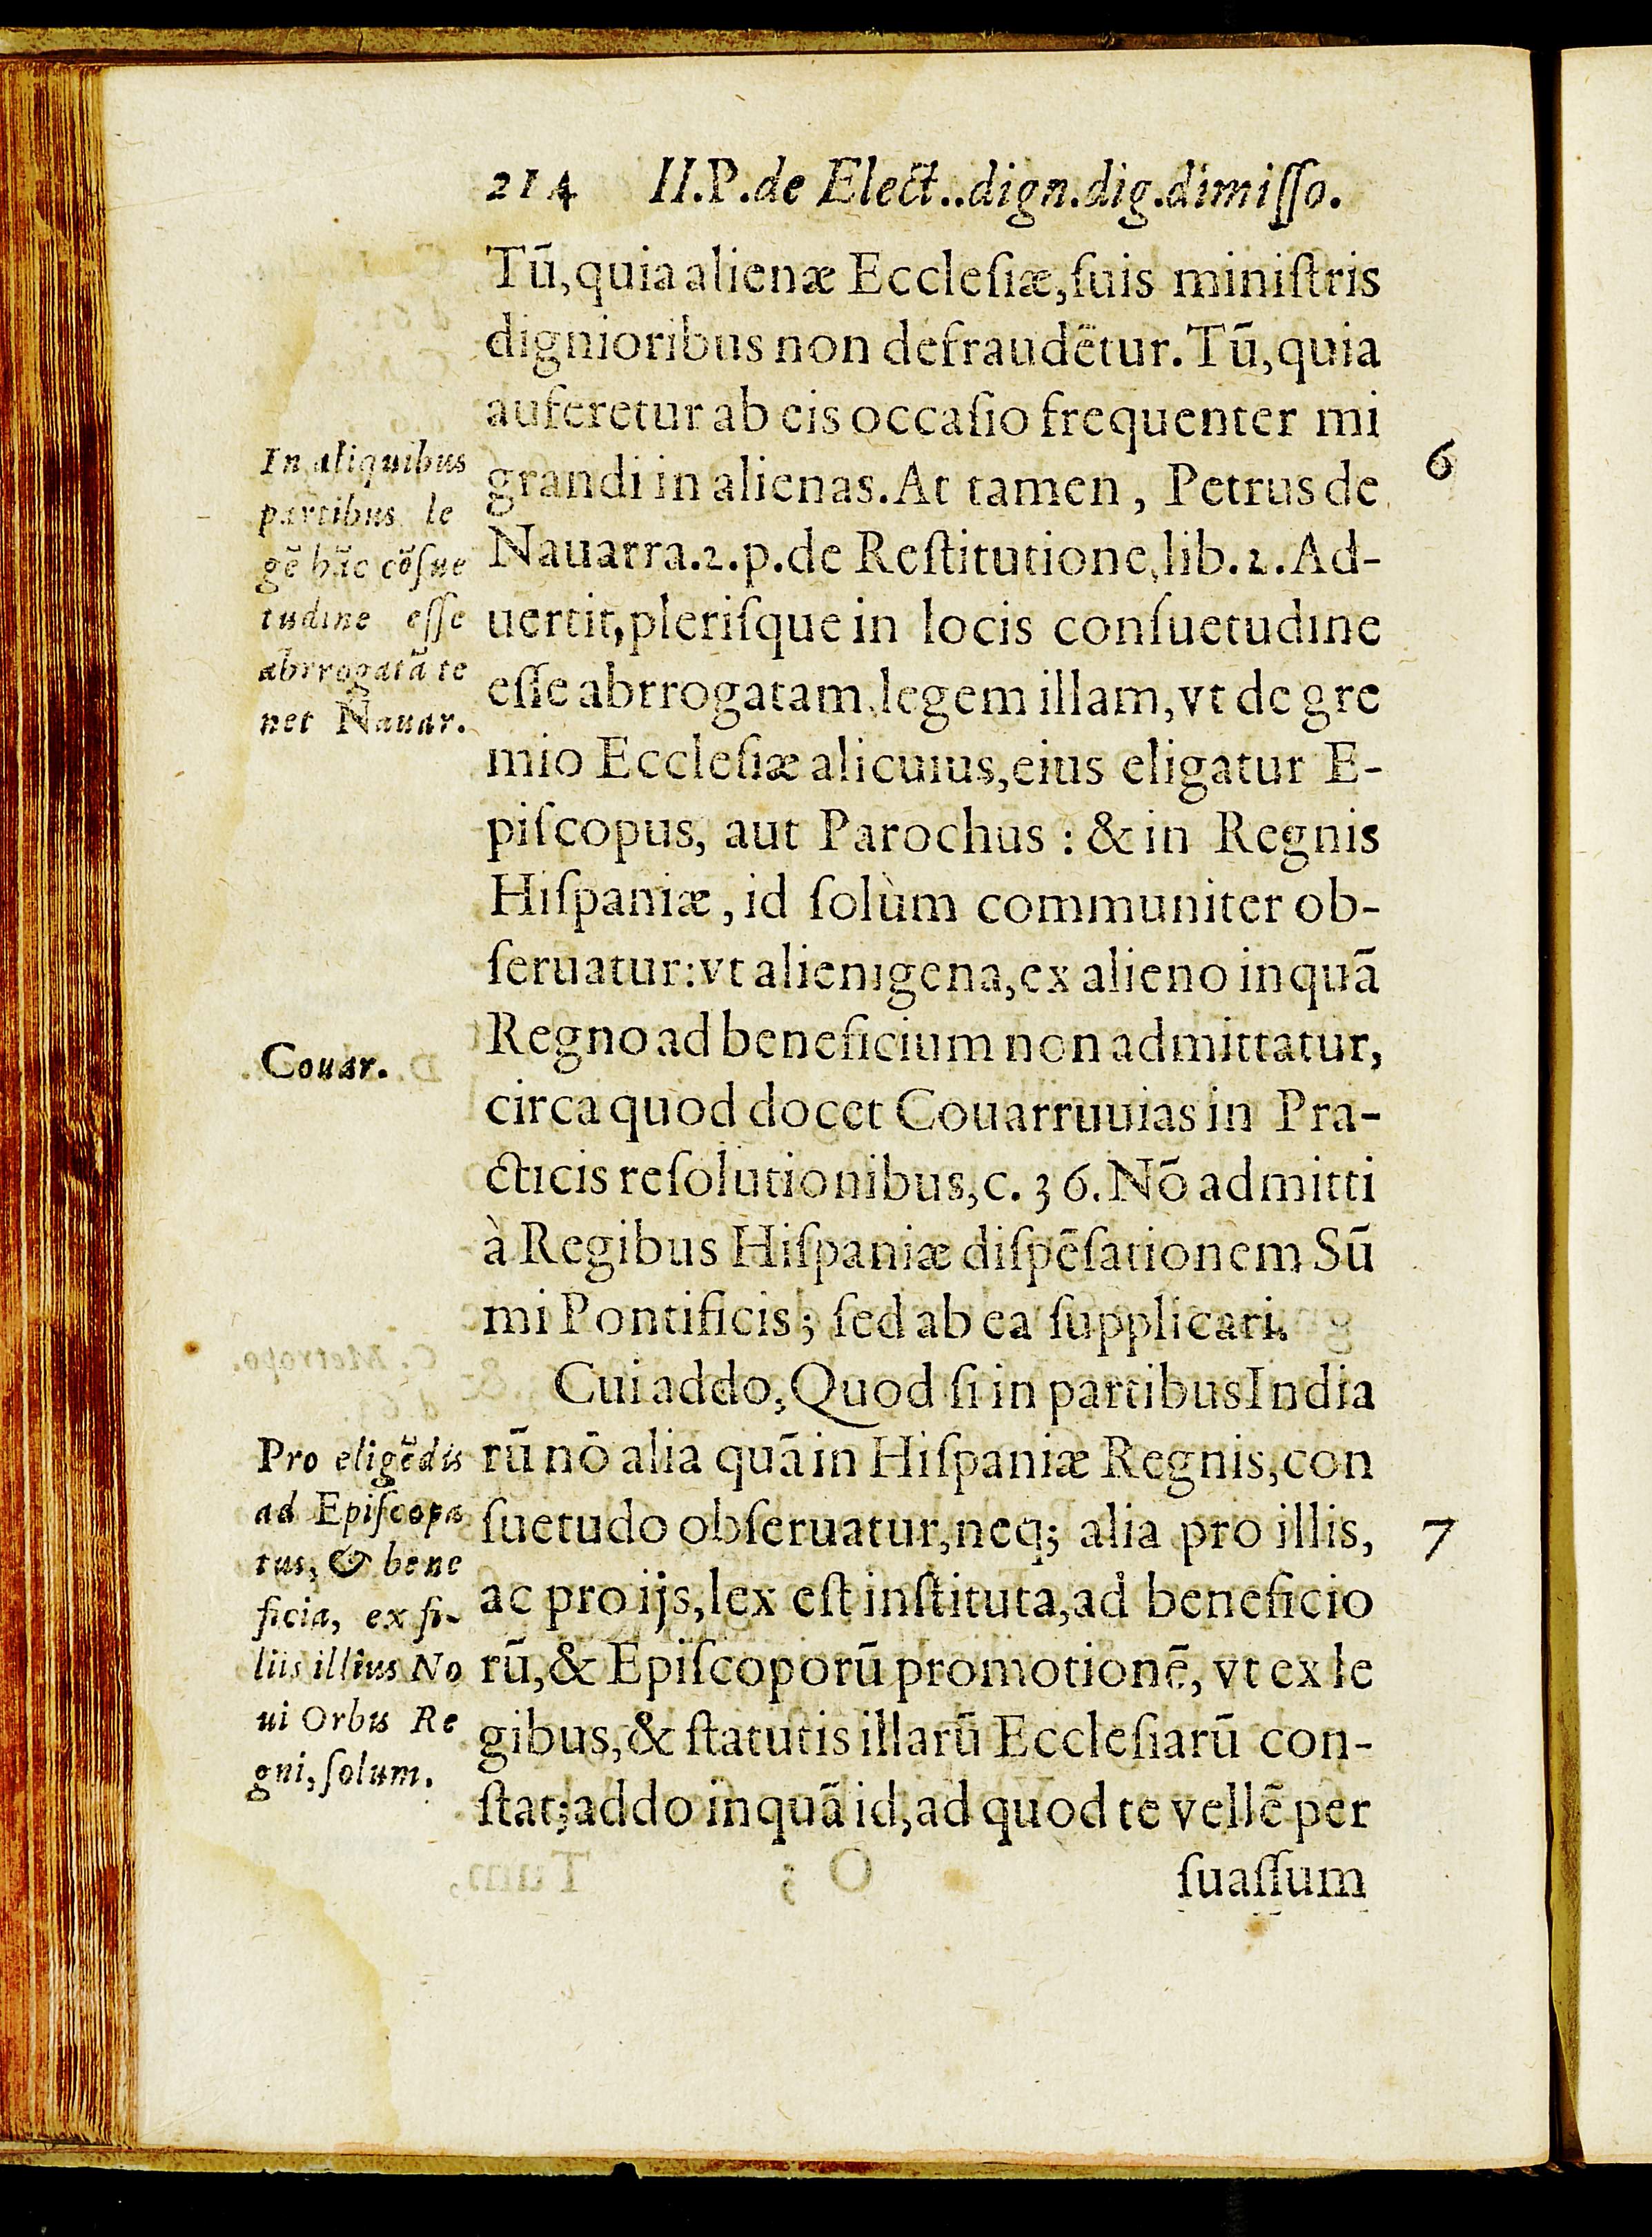 214 II.P.de Elect..dign.dig.dimiſſo.
Tū,quia alienæ Eccleſiæ,ſuis miniſtris
dignioribus non defraudētur.Tū,quia
auferetur ab eis occaſio frequenter mi
grandi in alienas.At tamen, Petrus de
Nauarra.2.p.de Reſtitutione,lib.2.Ad-
uertit,pleriſque in locis conſuetudine
eſſe abrrogatam legem illam,vt de gre
mio Eccleſiæ alicuius,eius eligatur E-
piſcopus, aut Parochus : & in Regnis
Hiſpaniæ, id ſolùm communiter ob-
ſeruatur:vt alienigena,ex alieno inquā
Regno ad beneficium non admittatur,
circa quod docet Couarruuias in Pra-
cticis reſolutionibus,c. 36.Nō admitti
à Regibus Hiſpaniæ diſpēſationem Sū
mi Pontificis; ſed ab ea ſupplicari.
Cui addo, Quod ſi in partibus India
rū nō alia quā in Hiſpaniæ Regnis,con
ſuetudo obſeruatur,neq; alia pro illis,
ac pro ijs,lex eſt inſtituta,ad beneficio
rū,& Epiſcoporū promotionē, vt ex le
gibus,& ſtatutis illarū Eccleſiarū con-
ſtat;addo inquā id,ad quod te vellē per
ſuaſſum
In aliquibus
partibus le
gē hāc cōſue
tudine eſſe
abrrogatā te
net Nauar.
Couar.
Pro eligēdis
ad Epiſcopa
tus, & bene
ficia, ex fi-
liis illius No
ui Orbis Re
gni, ſolum.
6
7